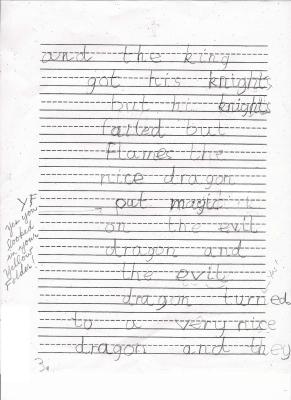 and the king
got his knights
but his knights
failed but
Flames the
nice dragon
put magic
on the evil
dragon and
the evil
dragon turned
to a very nice
dragon and they
YF
Yes you
looked
in your
Yellow
Folder
3.